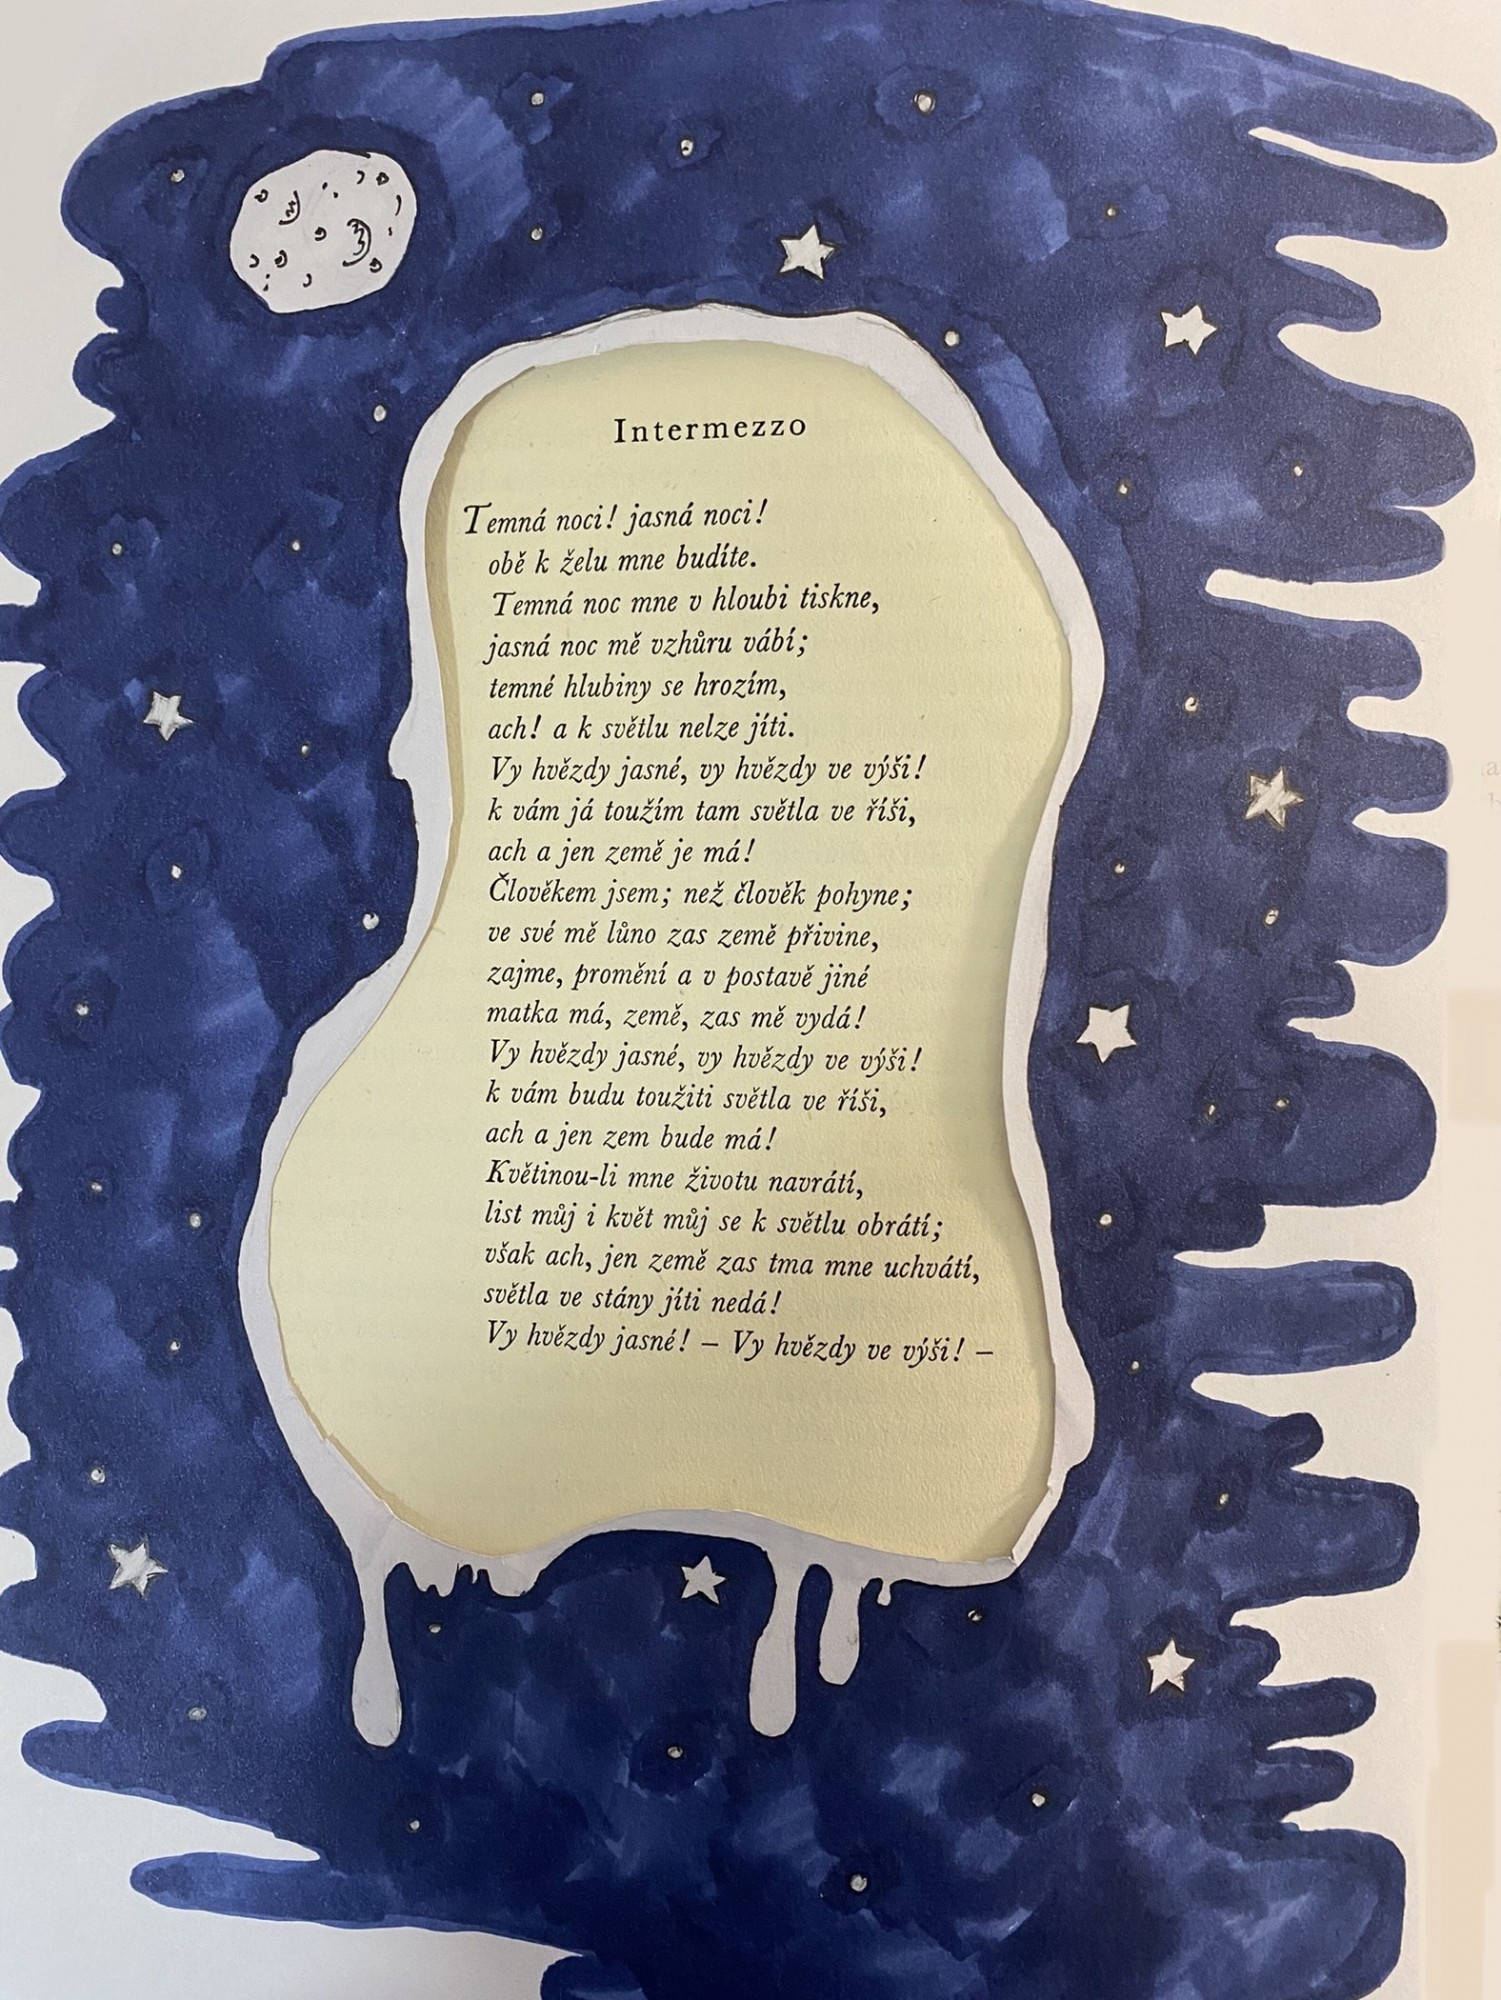 Intermezzo
Temná noci! jasná noci!
obě k želu mne budíte.
Temná noc mne v hloubi tiskne,
jasná noc mě vzhůru vábí;
temné hlubiny se hrozím,
ach! a k světlu nelze jíti.
Vy hvězdy jasné, vy hvězdy ve výši!
k vám já toužím tam světla ve říši,
ach a jen země je má!
Člověkem jsem; než člověk pohyne;
ve své mě lůno zas země přivine,
zajme, promění a v postavě jiné
matka má, země, zas mě vydá!
Vy hvězdy jasné, vy hvězdy ve výši!
k vám budu toužiti světla ve říši,
ach a jen zem bude má!
Květinou-li mne životu navrátí,
list můj i květ můj se k světlu obrátí;
však ach, jen země zas tma mne uchvátí,
světla ve stány jíti nedá!
Vy hvězdy jasné! – Vy hvězdy ve výši! –